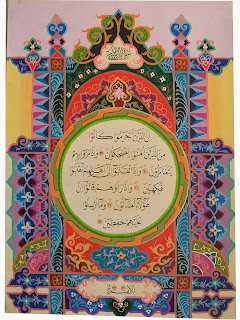 إن الذين أجرموا كانوا
من الذين ءامنوا يضحكون وإذا مروا بهم
يتغامزون وإذا انقلبوا إلى أهلهم انقلبوا
فكهين وإذا رأوهم قالوا إن
هؤلاء لضالون وما أرسلوا
عليهم حفظين